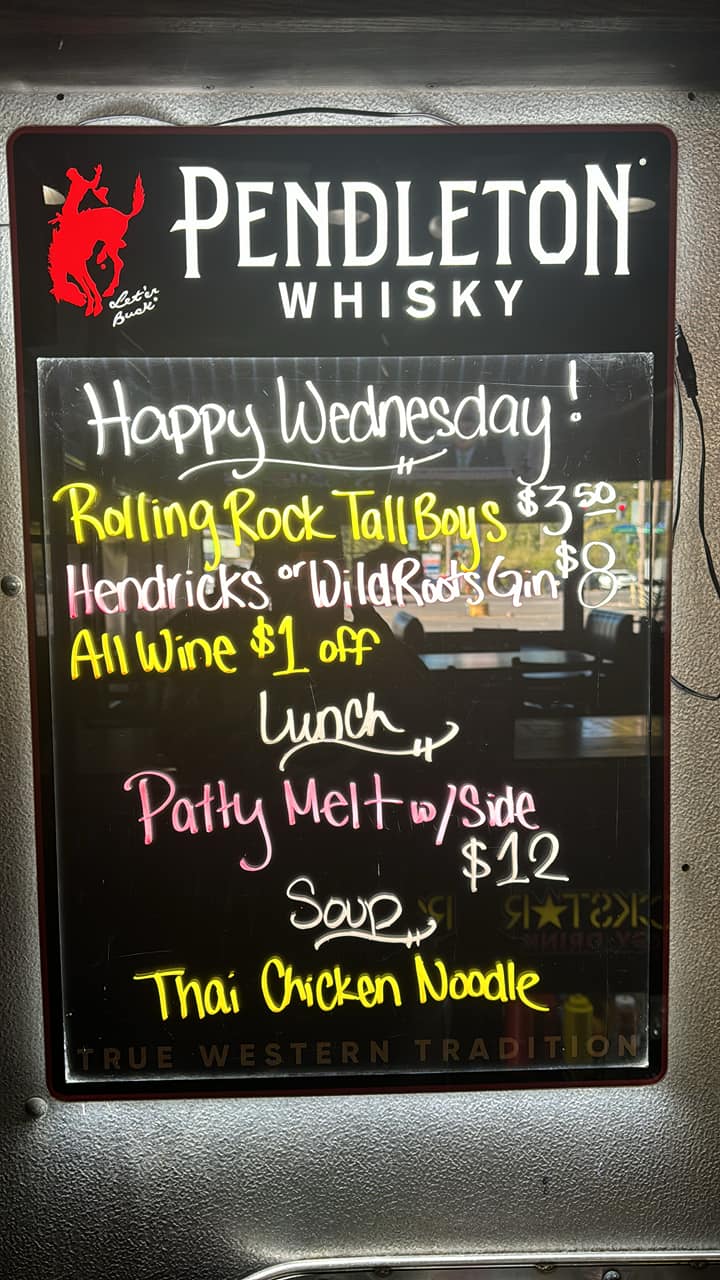 PENDLETON
WHISKY
Let'er
Buck
Happy Wednesday!
Rolling Rock Tall Boys $3.50
Hendricks or Wild Roots Gin $8
All Wine $1 off
Lunch
Patty Melt w/Side
$12
Soup
Thai Chicken Noodle
TRUE WESTERN TRADITION